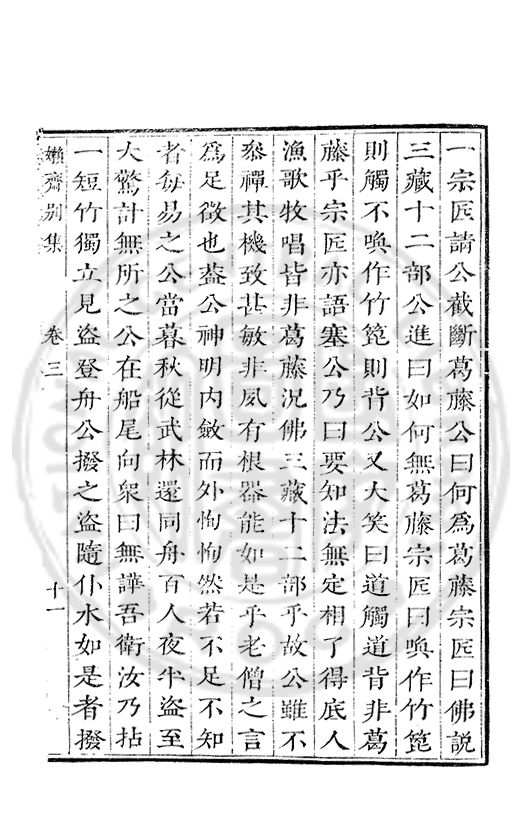 一宗匠請公截斷葛藤公曰何爲葛藤宗匠曰佛説
三藏十二部公進曰如何無葛藤宗匠曰喚作竹篦
則觸不喚作竹篦則背公又大笑曰道觸道背非葛
藤乎宗匠亦語塞公乃曰要知法無定相了得底人
漁歌牧唱皆非葛藤況佛三藏十二部乎故公雖不
叅禪其機致甚敏非夙有根器能如是乎老僧之言
爲足徵也葢公神明内斂而外恂恂然若不足不知
者每易之公當暮秋從武林還同舟百人夜半盜至
大驚計無所之公在船尾向衆曰無譁吾衛汝乃拈
一短竹獨立見盜登舟公撥之盜隨仆水如是者撥
嬾齋别集
卷三
十一